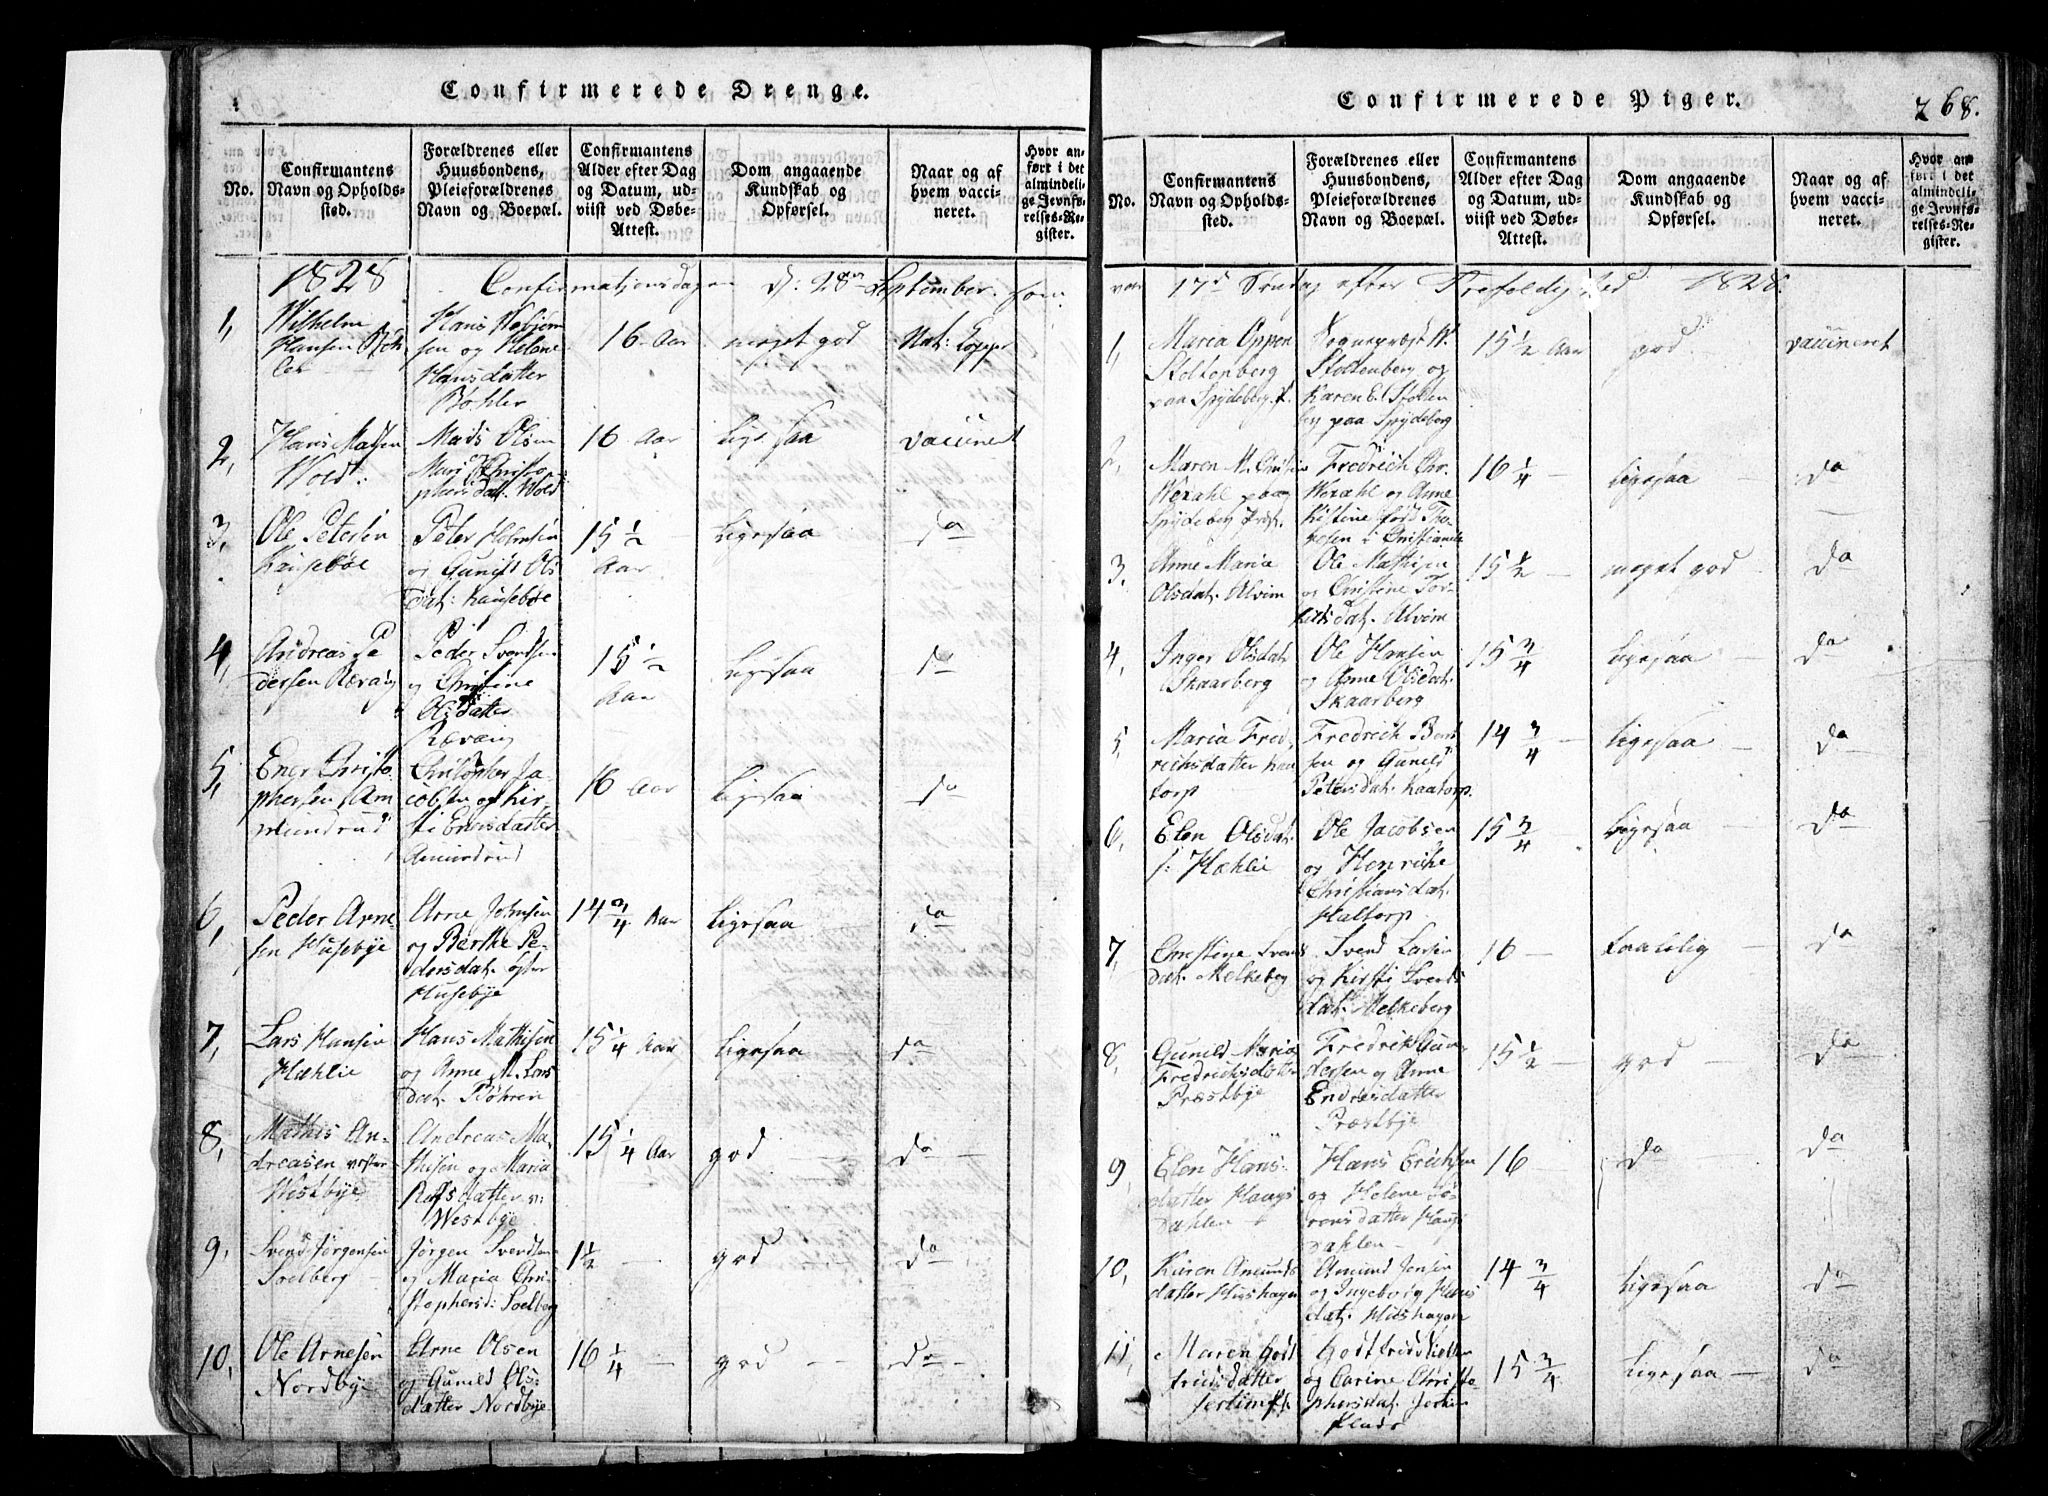 Confirmerede Drenge.
No.
Confirmantens
Navn og Opholds-
sted.
Forældrenes eller
Huusbondens,
Pleieforældrenes
Navn og Boepæl.
Confirmantens
Alder efter Dag
og Datum, ud-
viist ved Døbe-
Attest.
Dom angaaende
Kundskab og
Opførsel.
Naar og af
hvem vacci-
neret.
Hvor an-
ført i det
almindeli-
ge Jevnfø-
relses-Re-
gister.
1828 Confirmationsdagen d: 28de September. som
1,
Wilhelm
Hansen
Hans
sen og Helene
Hansdatter
Bøhler
16 Aar
meget god
Nat: Kopper
2,
Hans Madsen
Wold:
Mads Olsen
Mari Christo
phersdat. Wold
16 Aar
ligesaa
vaccineret
3,
Ole Petersen
Kausebøe
Peter Holmsen
og Gunild Ols
dat: Kausebøe
15 1/2
Aar
Ligesaa
do
4,
Andreas Pe
dersen Revaug
Peder Svendsen
og Christine
Olsdatter
Revaug
15 1/2
Aar
Ligesaa
do
5,
Ener Christo
phersen Am
mundrud
Christopher Ja
cobsen og Kir
sti Enersdatter
Amundrud
16 Aar
Ligesaa
do
6,
Peder Arne
sen Husebye
Arne Johnsen
og Berthe Pe
dersdat. Øster
Husebye
14 3/4 Aar
Ligesaa
do
7,
Lars Hansen
Hæhlie
Hans Mathisen
og Anne M. Lars
dat. Böhren
15 1/4 Aar
Ligesaa
do
8,
Mathis An-
dreasen vester
Westbye
Andreas Ma-
thisen og Maria
Rolfsdatter v:
Westbye
15 1/4 Aar
god
do
9,
Svend Jørgensen
Soelberg
Jørgen Svendsen
og Maria Chri
stophersd: Soelberg
1 1/2 —
god
do
10,
Ole Arnesen
Nordbye
Arne Olsen
og Gunild Ols
datter Nordbye
16 1/4 —
god —
do
Confirmerede Piger.
268.
No.
Confirmantens
Navn og Opholds-
sted.
Forældrenes eller
Huusbondens,
Pleieforældrenes
Navn og Boepæl.
Confirmantens
Alder efter Dag
og Datum, ud-
viist ved Døbe-
Attest.
Dom angaaende
Kundskab og
Opførsel.
Naar og af
hvem vacci-
neret.
Hvor an-
ført i det
almindeli-
ge Jevnfø-
relses-Re-
gister.
var 17de Søndag efter Trefoldighed 1828.
1,
Maria Oppen
Stoltenberg
paa Spydeberg P.
Sogneprest W.
Stoltenberg og
Karen E. Stolten
berg paa Spydeberg
15 1/2 Aar
god
vaccineret
2,
Maren M. Christine
Werahl paa
Spydeberg Præst.
Fredrich Chr.
Werahl og Anne
Kistine født Tho
resen i Christiania
16 1/4 —
ligesaa —
do
3,
Anne Maria
Olsdat. Alvim
Ole Mathisen
og Christine Tor
kildsdat. Alvim
15 1/2 —
meget god —
do
4,
Inger Olsdat.
Skaarberg
Ole Hansen
og Anne Olsdat.
Skaarberg
15 3/4 —
Ligesaa —
do
5,
Maria Fred-
richsdatter Kaa
torp
Fredrich Bent
sen og Gunild
Petersdat. Kaatorp.
14 3/4 —
Ligesaa —
do
6,
Elen Olsdat.
s: Hæhlie
Ole Jacobsen
og Henricke
Christiansdat.
Haltorp
15 3/4 —
Ligesaa —
do
7,
Christine Svends
dat. Melkeberg
Svend Larsen
og Kirsti Svends
dat. Melkeberg
16 —
taalelig —
do
8,
Gunild Maria
Fredrichsdatter
Præstbye
Fredrich Gun
dersen og Anne
Endresdatter
Præstbye
15 1/2 —
god —
do
9,
Elen Hans-
datter Haugs
Dahlen
Hans Erichsen
og Helene Sø-
rensdatter Haugs
Dahlen —
16 —
do —
do
10,
Karen Amunds
datter Hushagen
Amund Jensen
og Ingeborg Hans
dat. Hushagen
14 3/4 —
Ligesaa
do
11,
Maren Godt
fredsdatter
og Carine Christo
phersdat.
Plads
15 3/4 —
Ligesaa —
do